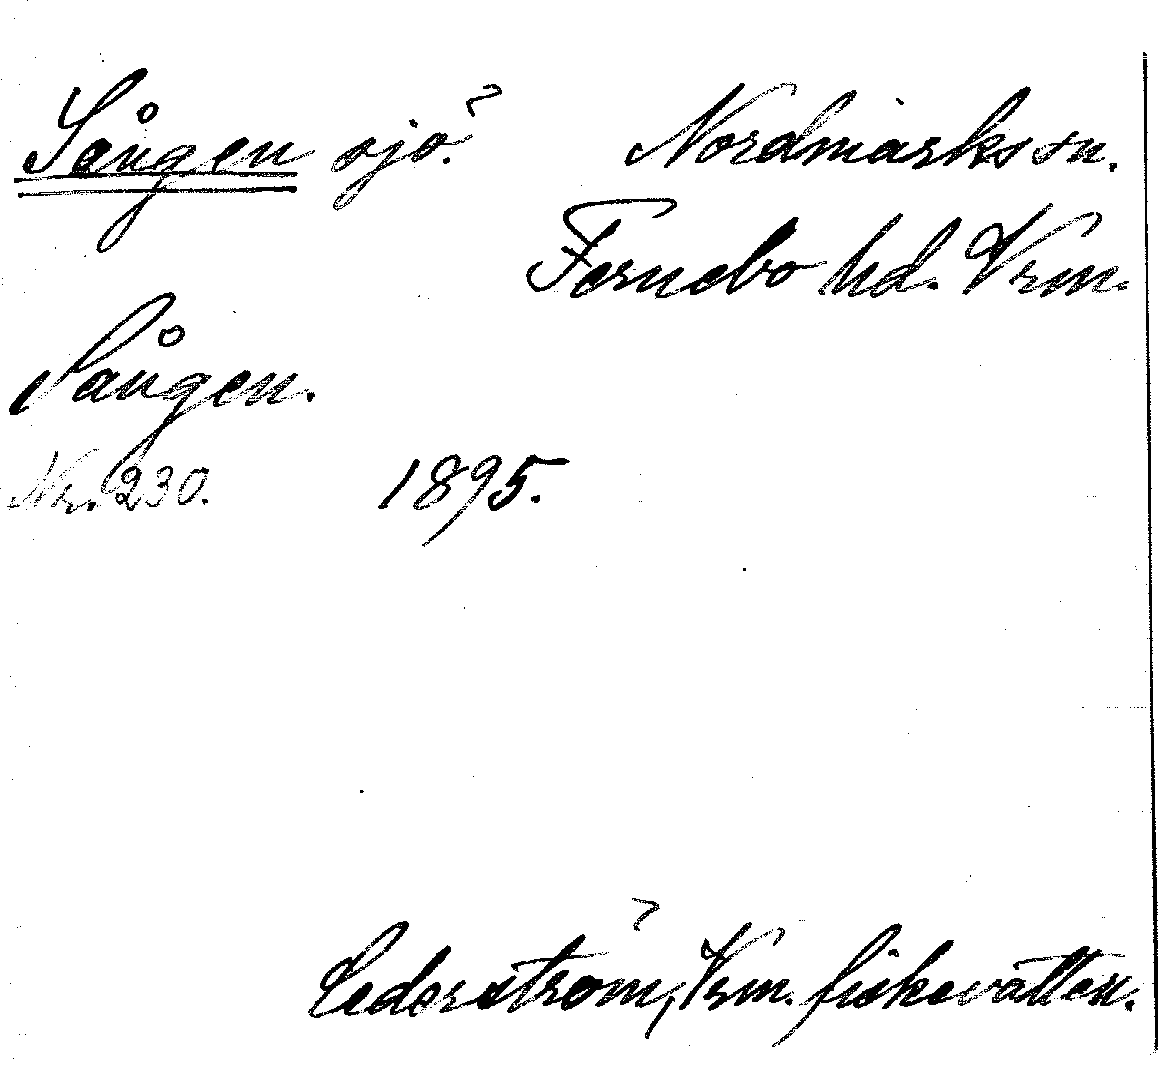 Sången sjö. Nordmarks sn.
Fernebo hd. Vrm.
Sången.
Nr. 230. 1895.
Cederström, Vrm. fiskevatten.